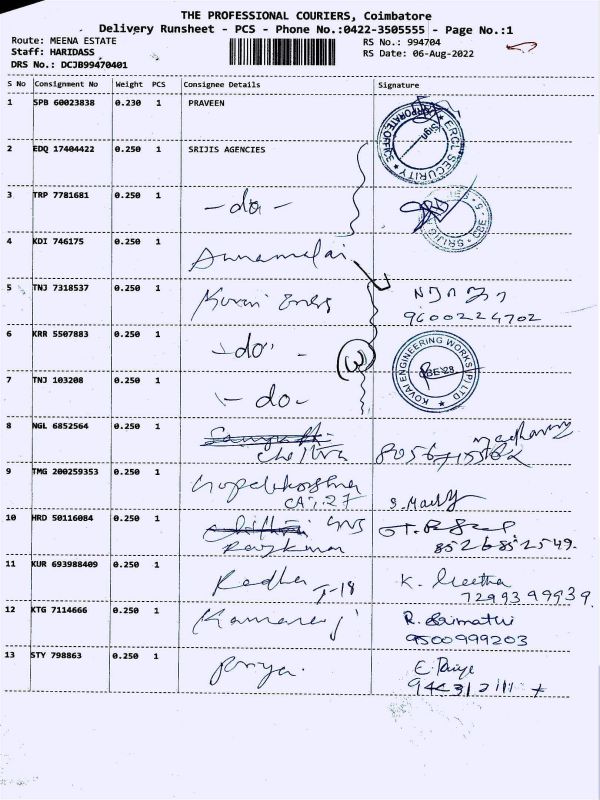 THE PROFESSIONAL COURIERS, Coimbatore
Delivery Runsheet - PCS - Phone No.:0422-3505555 - Page No.:1
Route: MEENA ESTATE
Staff: HARIDASS
DRS No.: DCJB99470401
RS No.: 994704
RS Date: 06-Aug-2022
S No Consignment No Weight PCS Consignee Details Signature
1 SPB 60023838 0.230 1 PRAVEEN
ERCL SECURITY CORPORATE OFFICE
2 EDQ 17404422 0.250 1 SRIJIS AGENCIES
3 TRP 7781681 0.250 1 - do -
SRIJIS CBE - 5
4 KDI 746175 0.250 1 Annamalai
5 TNJ 7318537 0.250 1 Kovai
9600224702
6 KRR 5507883 0.250 1 - do -
KOVAI ENGINEERING WORKS (P) LTD
CBE-28
7 TNJ 103208 0.250 1 - do -
3
8 NGL 6852564 0.250 1
9 TMG 200259353 0.250 1
10 HRD 50116084 0.250 1
Rajkumar 8526852549.
11 KUR 693988409 0.250 1 Radha T-18 K. Geetha
7299399939.
12 KTG 7114666 0.250 1 Kamaraj R. Srimathi
9500999203
13 STY 798863 0.250 1 Priya.